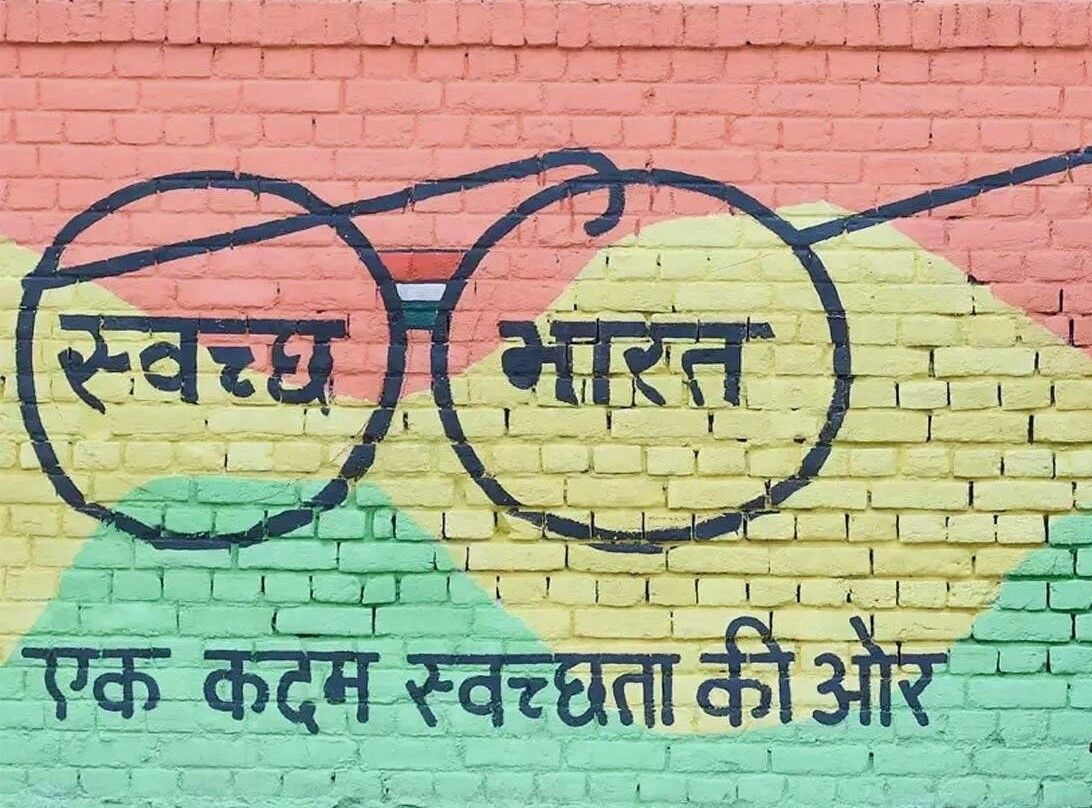 स्वच्छ भारत
एक कदम स्वच्छता की और